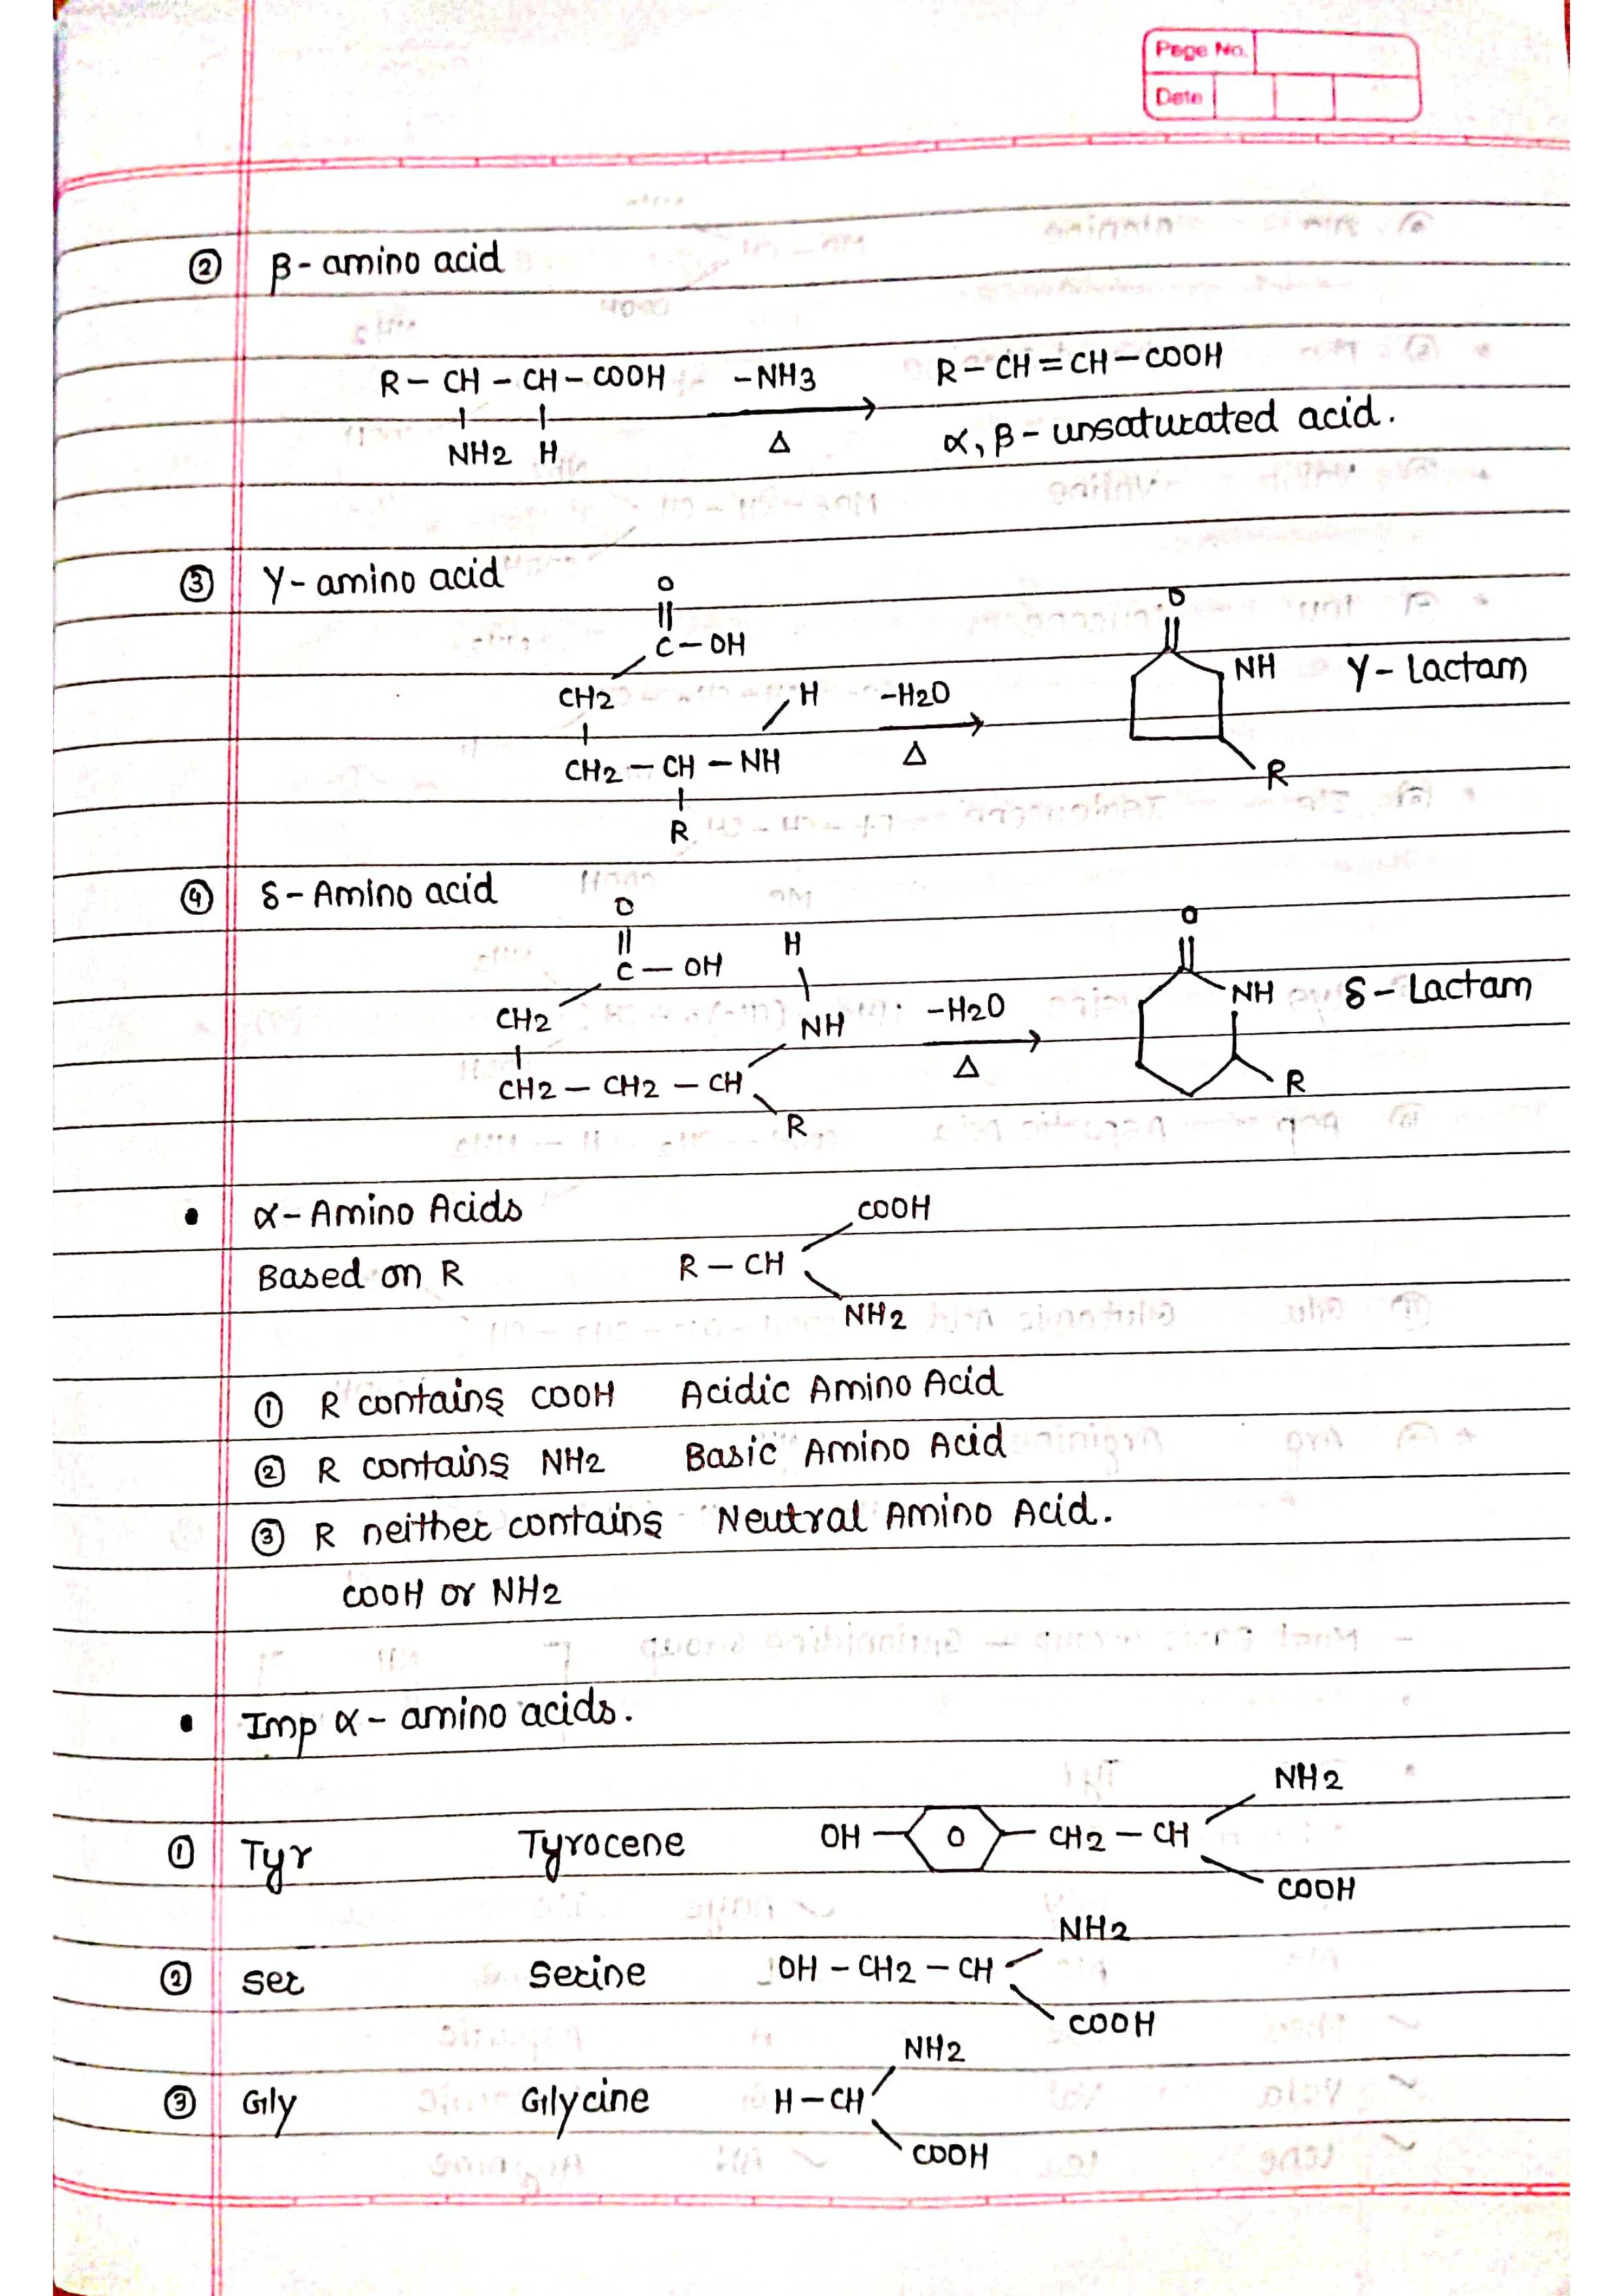 Page No.
Date
② β- amino acid
R – CH – CH – COOH   –NH3   R – CH = CH – COOH
NH2 H   Δ   α, β - unsaturated acid.
③ γ- amino acid
O   O
||   ||
C – OH
NH   γ- Lactam
CH2   H   –H2O
CH2 – CH – NH   Δ
R
R
④ δ- Amino acid
O   O
||   H   ||
C – OH
NH   δ - Lactam
CH2   NH   –H2O
CH2 – CH2 – CH   Δ   R
R
• α- Amino Acids   COOH
Based on R   R – CH
NH2
① R contains COOH   Acidic Amino Acid
② R contains NH2   Basic Amino Acid
③ R neither contains   Neutral Amino Acid.
COOH or NH2
• Imp α - amino acids.
NH2
① Tyr   Tyrocene   OH – O – CH2 – CH
COOH
NH2
② Ser   Serine   OH – CH2 – CH
COOH
NH2
③ Gly   Glycine   H – CH
COOH